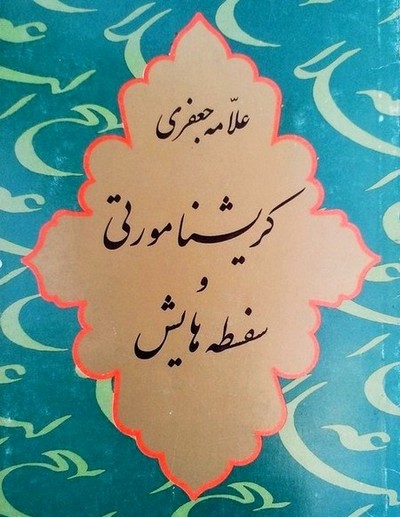 علّامه جعفری
کریشنامورتی
و
سفسطه هایش